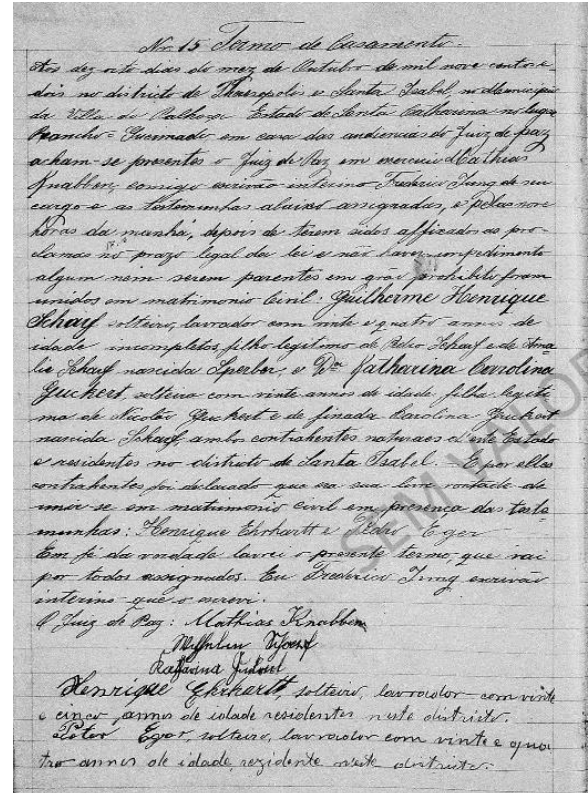 Nr. 15 Termo de Casamento.
Aos dezoito dias do mez de Outubro de mil nove centos e
dois no districto de Theresopolis e Santa Isabel, no Municipio
da Villa de Palhoça Estado de Santa Catharina no lugar
Rancho-Queimado em casa das audiencias do Juiz de paz
acham-se presentes o Juiz de Paz em exercicio Mathias
Knabben, comigo escrivão interino Frederico Jung de seu
cargo e as testemunhas abaixo assignadas, e pelas nove
horas da manhã, depois de terem sidos afficados os pro-
clamas no prazo legal da lei e não haver impedimento
algum nem serem parentes em gráo prohibito foram
unidos em matrimonio Civil: Guilherme Henrique
Scharf solteiro, lavrador com vinte e quatro annos de
idade incompletos, filho legitimo de Pedro Scharf e de Ama-
lie Scharf nascida Sperber, e Da. Katharina Carolina
Guckert, solteira com vinte annos de idade filha legiti-
ma de Nicoláo Guckert e de finada Carolina Guckert
nascida Scharf, ambos contrahentes naturaes d'este Estado
e residentes no districto de Santa Isabel. E por elles
contrahentes foi declarado que era sua livre vontade de
unir-se em matrimonio civil em presença das teste-
munhas: Henrique Ehrhardt e Pedro Eger
Em fé da verdade lavrei o presente termo, que vai
por todos assignados. Eu Frederico Jung escrivão
interino que o escrevi.
O Juiz de Paz: Mathias Knabben
Wilhelm Scharf
Katharina Guckert
Henrique Ehrhardt, solteiro, lavrador com vinte
e cinco annos de idade residentes neste districto.
Peter Eger, solteiro, lavrador com vinte e qua-
tro annos de idade, rezidente neste districto.
SEM VALOR